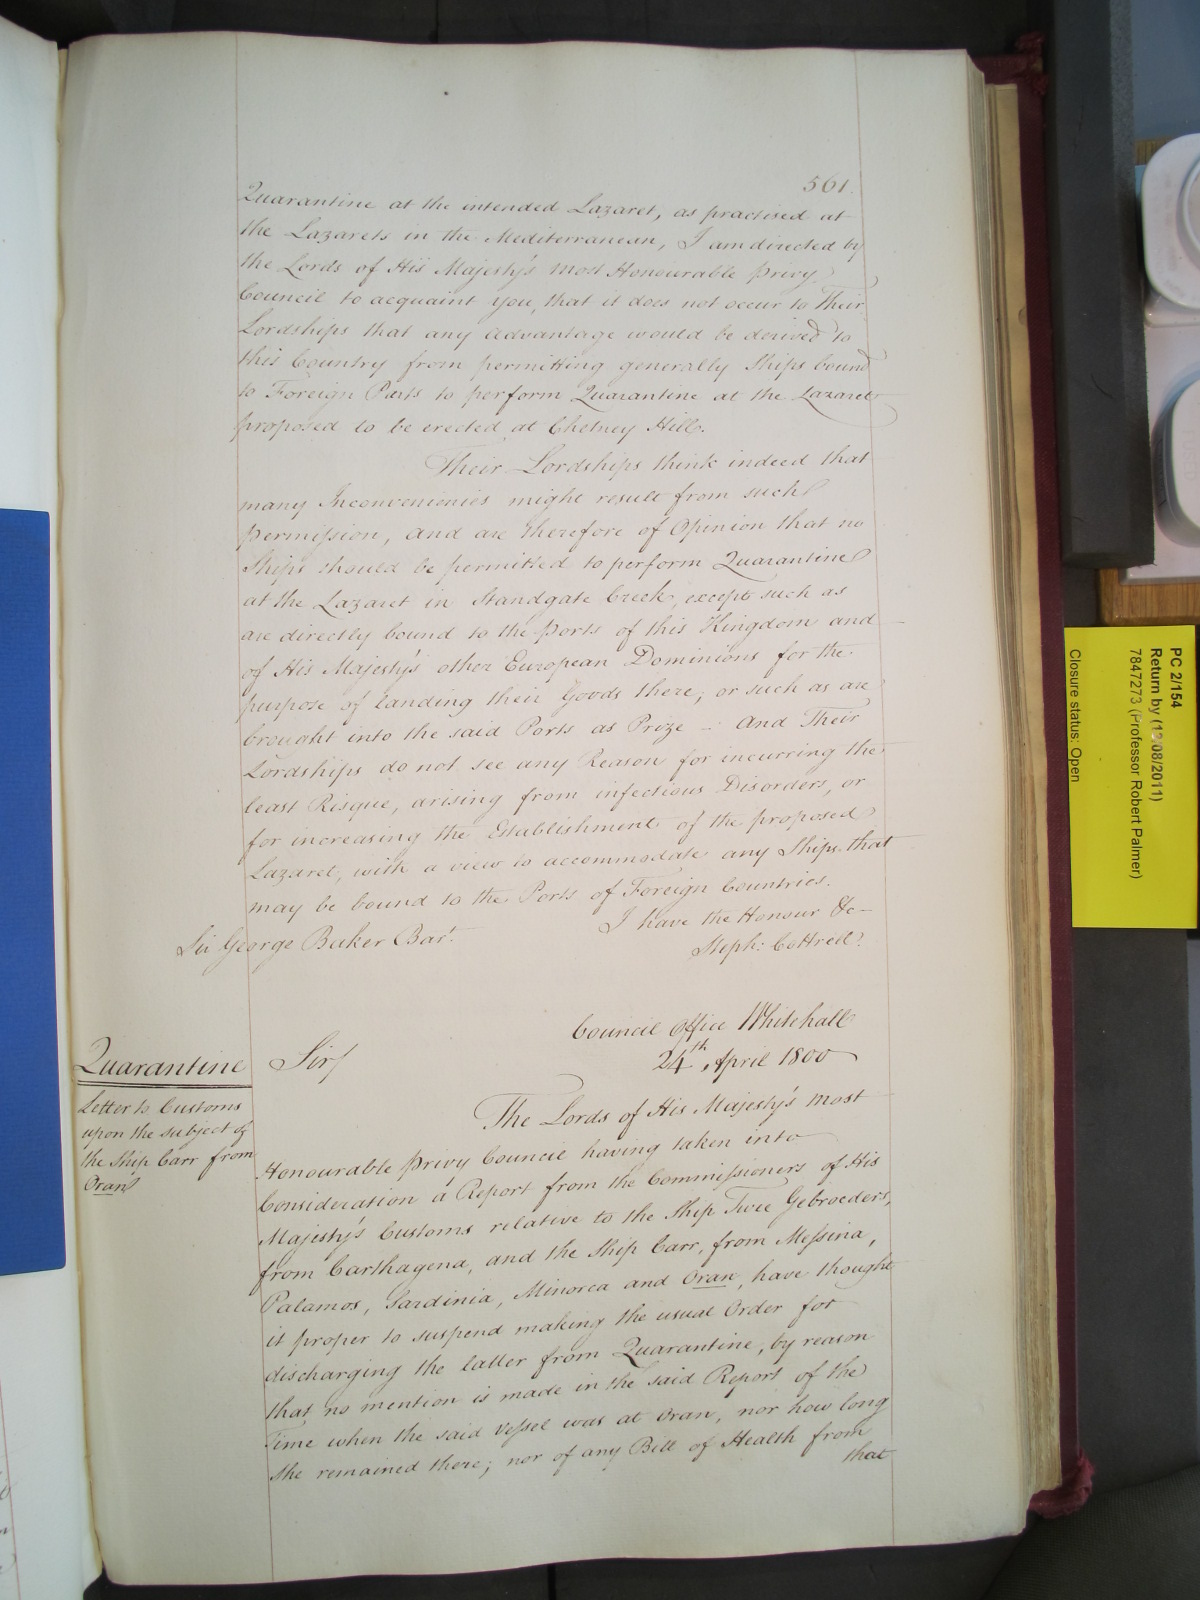 561.
Quarantine at the intended Lazaret, as practised at
the Lazarets in the Mediterranean, I am directed by
the Lords of His Majesty's most Honourable Privy
Council to acquaint you, that it does not occur to Their
Lordships that any advantage would be derived to
this Country from permitting generally Ships bound
to Foreign Parts to perform Quarantine at the Lazaret
proposed to be erected at Chetney Hill.
Their Lordships think indeed that
many Inconveniencies might result from such
permission, and are therefore of Opinion that no
Ships should be permitted to perform Quarantine
at the Lazaret in Standgate Creek, except such as
are directly bound to the Ports of this Kingdom and
of His Majesty's other European Dominions for the
purpose of landing their Goods there, or such as are
brought into the said Ports as Prize :- And Their
Lordships do not see any Reason for incurring the
least Risque, arising from infectious Disorders, or
for increasing the Establishment of the proposed
Lazaret, with a view to accommodate any Ships that
may be bound to the Ports of Foreign Countries.
I have the Honour &c-
Sir George Baker Bart.
Steph: Cottrell.
Council Office Whitehall
24th April 1800
Quarantine
Letter to Customs
upon the subject of
the Ship Carr from
Oran
Sir/
The Lords of His Majesty's most
Honourable Privy Council having taken into
Consideration a Report from the Commissioners of His
Majesty's Customs relative to the Ship Twee Gebroeders,
from Carthagena, and the Ship Carr, from Messina,
Palamos, Sardinia, Minorca and Oran, have thought
it proper to suspend making the usual Order for
discharging the latter from Quarantine, by reason
that no mention is made in the said Report of the
Time when the said Vessel was at Oran, nor how long
She remained there; nor of any Bill of Health from
that
PC 2/154
Return by (12/08/2011)
7847273 (Professor Robert Palmer)
Closure status: Open